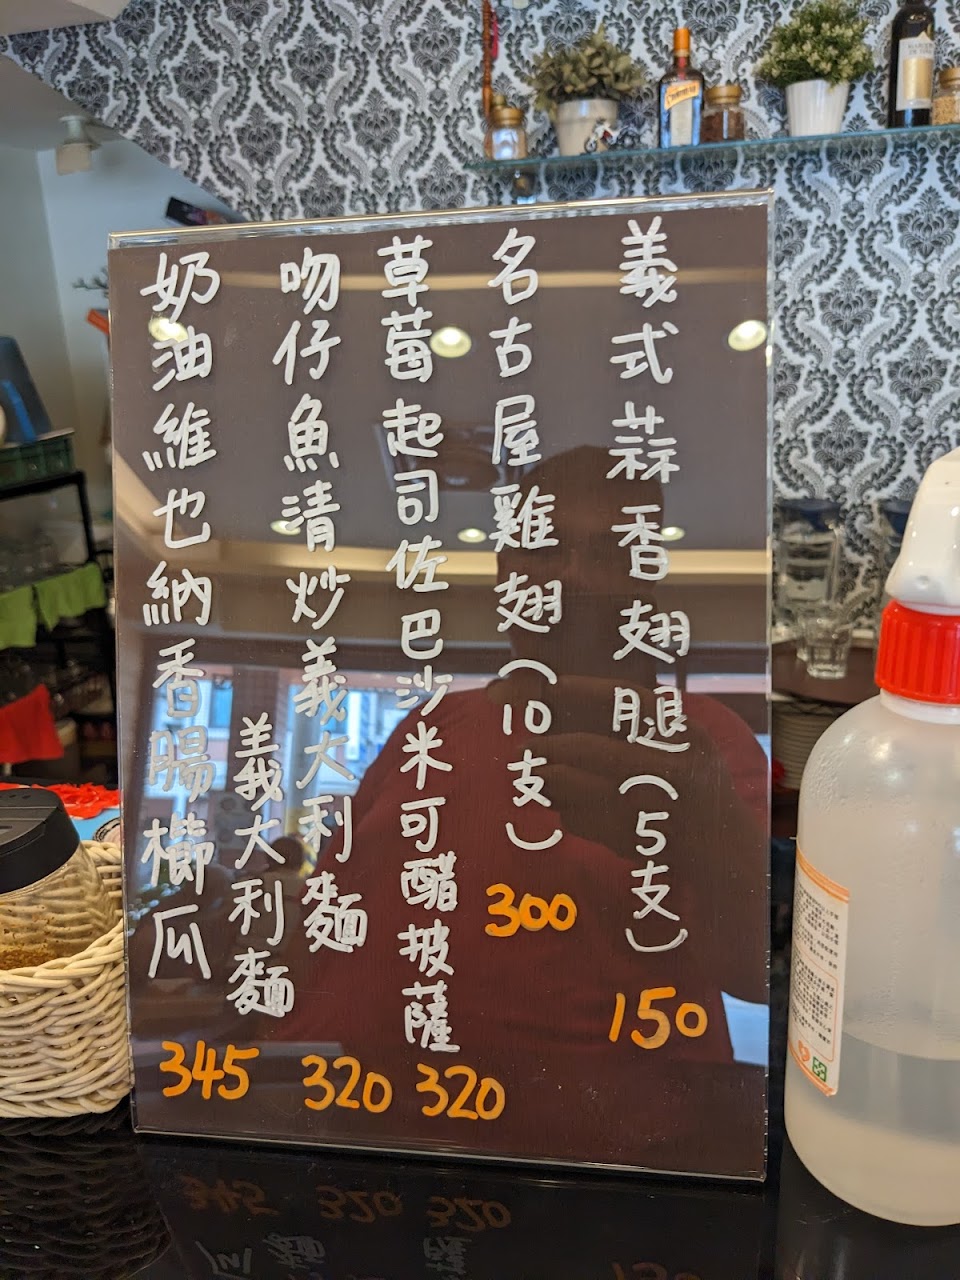 義式蒜香翅腿(5支)
150
名古屋雞翅(10支)
300
草莓起司佐巴沙米可醋披薩
320
吻仔魚清炒義大利麵
320
奶油維也納香腸櫛瓜
義大利麵
345